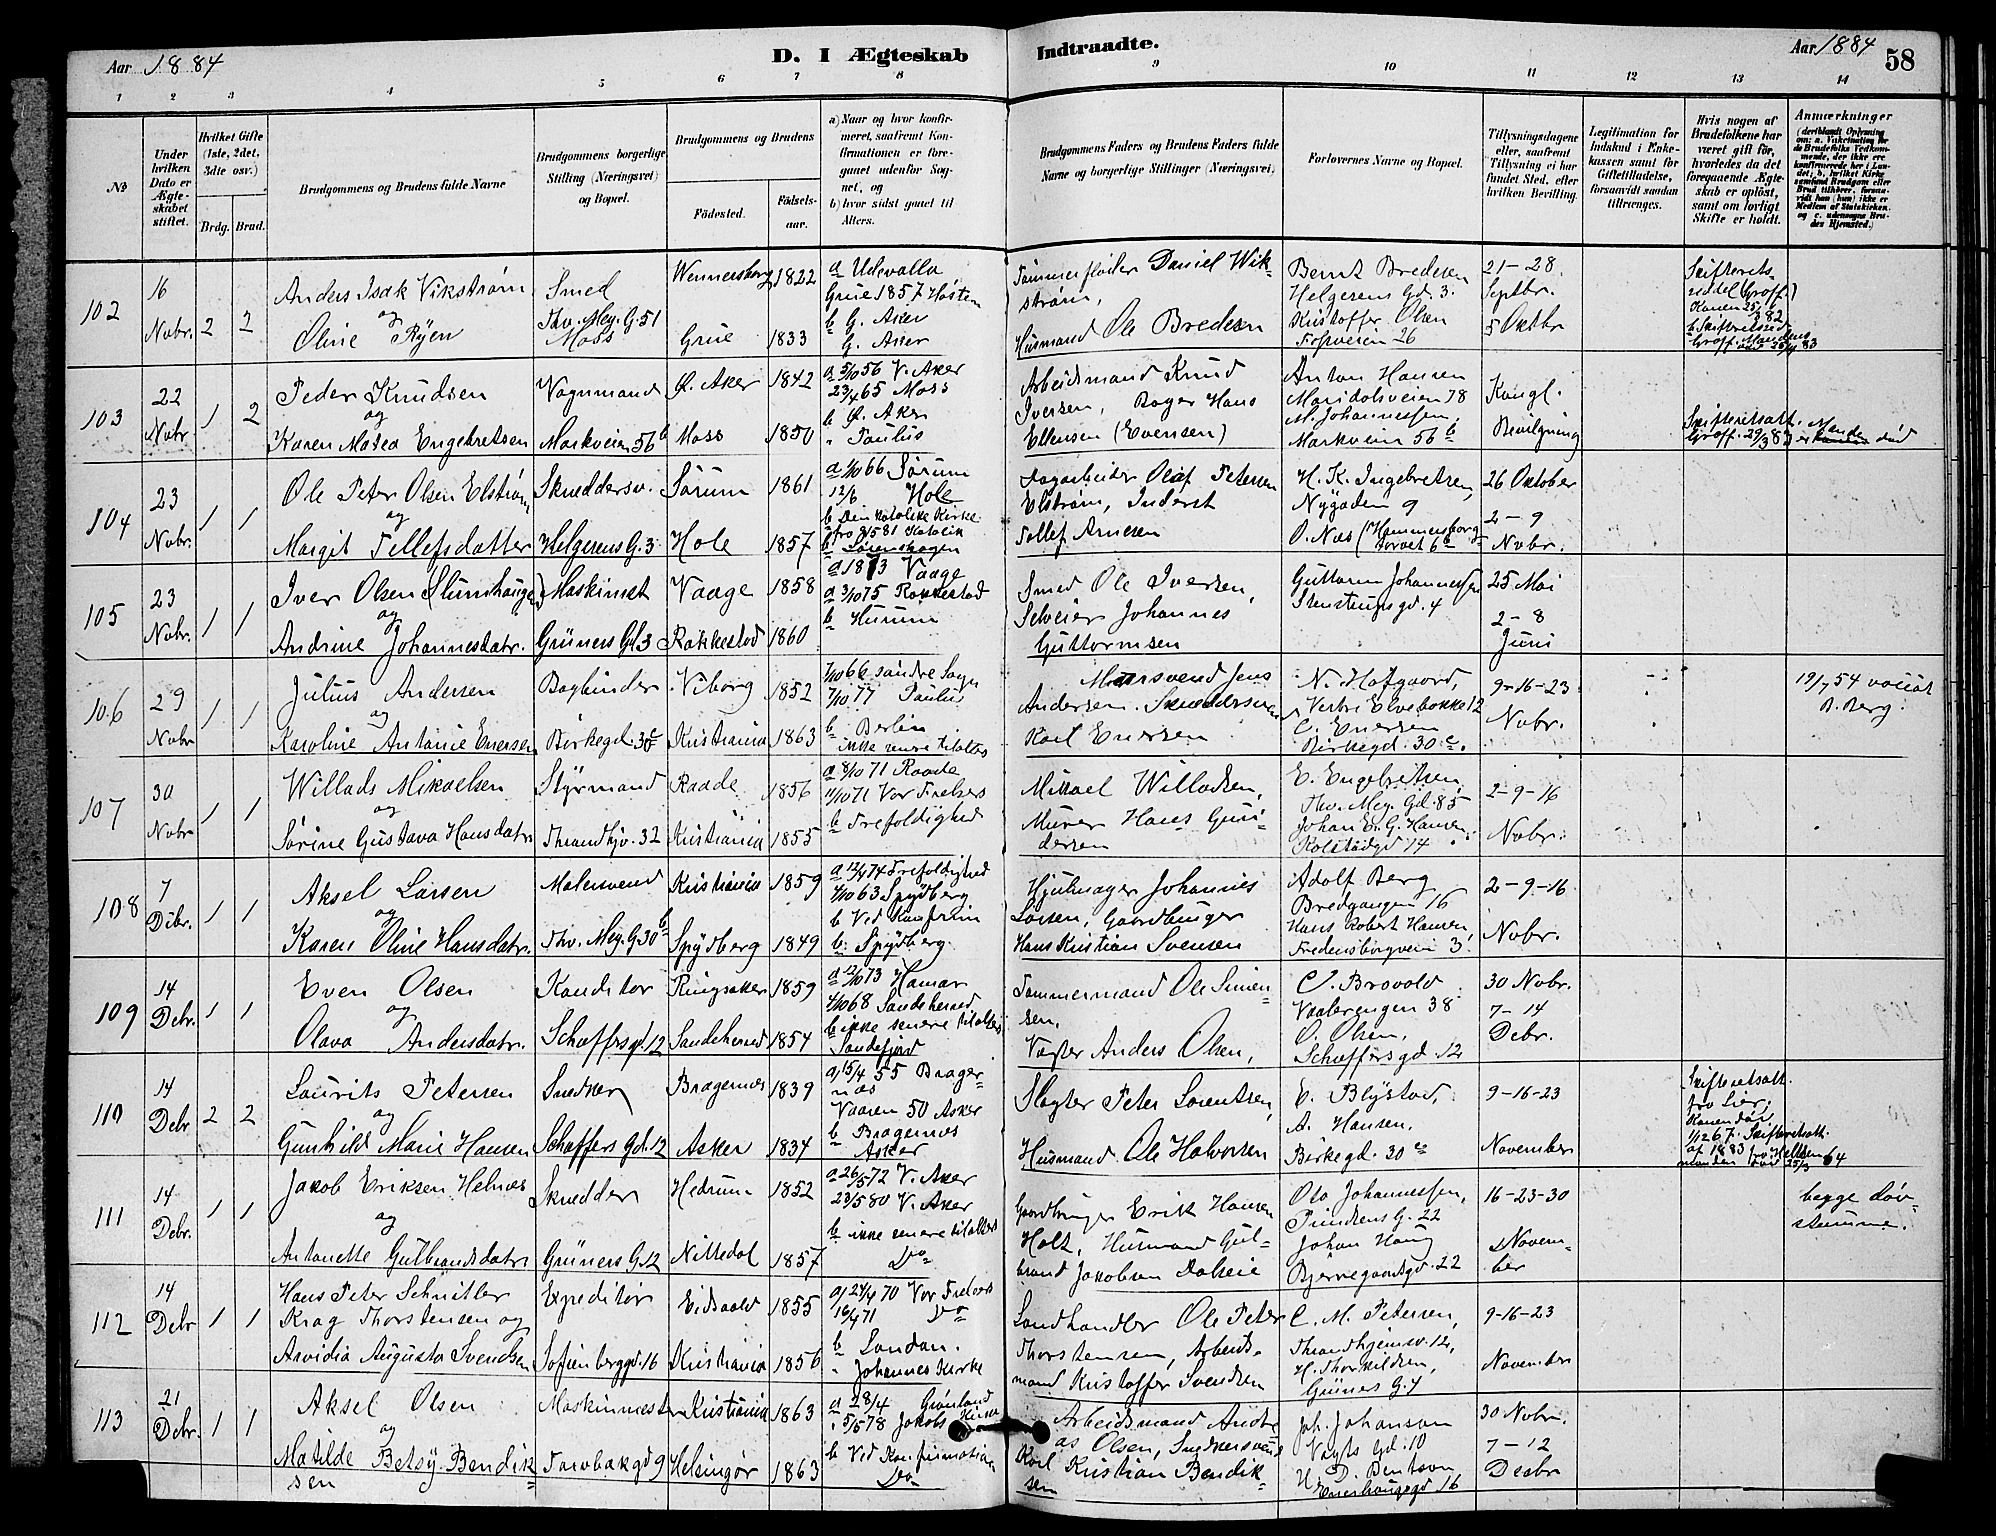 Aar 1884
D. I Ægteskab Indtraadte.
Aar 1884
58
1 2 3 4 5 6 7 8 9 10 11 12 13 14
No
Under hvilken Dato er Ægteskabet stiftet.
Hvilket Gifte (1ste, 2det, 3dte osv.)
Brdg. Brud.
Brudgommens og Brudens fulde Navne
Brudgommens borgerlige Stilling (Næringsvei) og Bopæl.
Brudgommens og Brudens
Fødested.
Fødselsaar.
a) Naar og hvor konfirmeret, saafremt Konfirmationen er foregaaet udenfor Sognet, og
b) hvor sidst gaaet til Alters.
Brudgommens Faders og Brudens Faders fulde Navne og borgerlige Stillinger (Næringsvei)
Forlovernes Navne og Bopæl.
Tillysningsdagene eller, saafremt Tillysning ei har fundet Sted, efter hvilken Bevilling.
Legitimation for Indskud i Enkekassen samt for Giftetilladelse, forsaavidt saadan tiltrænges.
Hvis nogen af Brudefolkene har været gift før, hvorledes da det foregaaende Ægteskab er opløst, samt om lovligt Skifte er holdt.
Anmærkninger
102
16 Nvbr. 2 2
Anders Isak Vikstrøm
og
Oline Ryen
Smed
Thv. Mey. G. 51
Moss
Wennersborg 1822
Grue 1833
a Udevalla
Grue 1857 Høsten
b G. Aker
G. Aker
Tømmerfløder Daniel Wikstrøm,
Husmand Ole Bredesen
Bernt Bredesen
Helgesens Gd. 3.
Kristoffer Olsen
Fossveien 26
21-28.
Septbr.
5 Oktbr
103
22 Nvbr 1 2
Peder Knudsen
og
Karen Matea Engebretsen
Vognmand
Markveien 56 b
Ø. Aker 1842
Moss 1850
a 5/10 56 V. Aker
23/4 65 Moss
b Ø. Aker
" Paulus
Arbeidsmand Knud
Iversen, Bager Hans
Ellensen (Evensen)
Anton Hansen
Maridalsveien 78
M. Johannessen,
Markveien 56 b
Kongl.
Bevilgning
104
23 Nvbr. 1 1
Ole Peter Olsen Elstrøm
og
Margit Tellefsdatter
Skreddersv.
Helgesens G. 3
Sørum 1861
Hole 1857
Sørum
Hole
b Den katolske Kirke
Dagarbeider Olaf Petersen
Elstrøm, Inderst
Tollef Arnesen
H. K. Ingebretsen,
Nygaden 9
O. Næs (Hammersborg
torvet 6 b
26 Oktober
2-9
Nvbr.
105
23 Nvbr. 1 1
Iver Olsen
og
Andrine Johannesdatr.
Maskinist
Grüners Gd. 3
Vaage 1858
Rakkestad 1860
a 1873 Vaage
a 3/10 75 Rakkestad
b Hurum
Smed Ole Iversen,
Selveier Johannes
Guttormsen
Guttorm Johannessen
Stenstrups gd. 4
25 Mai
2-8
Juni
106
29 Nvbr 1 1
Julius Andersen
og
Karoline Antonie Enersen
Bogbinder
Birkegd. 30 c
Viborg 1852
Kristiania 1863
1/10 66 søndre Sogn
7/10 77 Paulus
b Berlin
ikke senere tilalters
Mursvend Jens
Andersen. Skreddersvend
Karl Enersen
N. Hofgaard,
Vestre Elvebakke 12
C. Enersen
Birkegd. 30 c.
9-16-23
Nvbr.
19/7 54 vaccat
B. Berg.
107
30 Nvbr 1 1
Willads Mikaelsen
og
Sørine Gustava Hansdatr
Styrmand
Throndhjv. 32
Raade 1856
Kristiania 1855
a 8/10 71 Raade
11/10 71 Vor Frelsers
b Trefoldighed
Mikael Willadsen,
Murer Hans Gundersen
E. Engebretsen,
Thv. Mey. Gd. 85
Johan E. G. Hansen,
Kolstadgd 14
2-9-16
Nvbr.
108
7 Dcbr. 1 1
Aksel Larsen
og
Karen Oline Hansdatr.
Malersvend
Thv. Mey. G. 30 b
Kristiania 1859
Spydberg 1849
a 12/4 74 Trefoldighed
4/10 63 Spydberg
b Ved Konfirm
b. Spydberg.
Hjulmager Johannes
Larsen, Gaardbruger
Hans Kristian Svensen
Adolf Berg
Bredgangen 16
Hans Robert Hansen,
Fredensborgveien 3
2-9-16
Nvbr.
109
14 Debr. 1 1
Even Olsen
og
Olava Andersdatr.
Konditor
Schæffersgd 12
Ringsaker 1859
Sandeherred 1854
a 12/10 73 Hamar
4/10 68 Sandeherred
b ikke senere tilalters
Sandefjord
Tømmermand Ole Simensen.
Vægter Anders Olsen,
C. Brovold
Vaalerengen 38
O. Olsen,
Schæffersgd. 12
30 Nvbr.
7-14
Debr.
110
14 Debr 2 2
Laurits Petersen
og
Gunhild Marie Hansen
Snedker
Schæffers Gd. 12
Bragernæs 1839
Asker 1834
a 15/4 55 Bragernæs
Vaaren 50 Asker
b Bragernæs
Asker
Slagter Peter Lorentsen,
Husmand Ole Halvorsen
E. Blystad,
A. Hansen,
Birkegd. 30 c
9-16-23
November
111
14 Debr. 1 1
Jakob Eriksen Helnæs
og
Antonette Gulbrandsdatr.
Skredder
Grüners G. 12
Hedrum 1852
Nittedal 1857
a 26/5 72 V. Aker
23/5 80 V. Aker
b ikke senere tilalters
Do
Gaardbruger Erik Hansen
Holt, Husmand Gulbrand Jakobsen Dalseie
Ola Johannessen,
G. 22
Johan Haug
Bjerregaardsgd. 22
16-23-30
November
begge døvstumme.
112
14 Debr 1 1
Hans Peter Schnitler
Krag Thorstensen og
Arvidia Augusta Svendsen
Expeditør
Sofienberggd. 16
Eidsvold 1855
Kristiania 1856
a) 24/4 70 Vor Frelsers
16/4 71 Do
b London.
" Johannes Kirke
Landhandler Ole Peter
Thorstensen, Arbeidsmand Kristoffer Svendsen
C. M. Petersen,
Throndhjemsv. 12,
H. Thorkildsen,
Grüners G. 4
9-16-23
November
113
21 Debr. 1 1
Aksel Olsen
og
Matilde Betsy Bendiksen
Maskinmester
Torvbakgd 9
Kristiania 1863
Helsingør 1863
a 28/4 Grønland
" 5/5 78 Jakobs Kirke
b Ved Konfirmation
Do
Arbeidsmand Andreas Olsen, Snedkersvend
Karl Kristian Bendiksen
Joh. Johanson
Vogts gd. 10
H. D. Bentsen
Enerhauggd 16
30 Nvbr.
7-12
Decbr